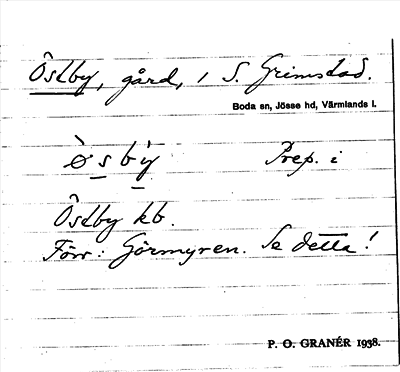 Östby, gård, i S. Grimstad.
Boda sn, Jösse hd, Värmlands l.
ø̀ s b y̆ Prep. i
Östby kb.
Förr: Görmyren. Se detta!
P. O. GRANÉR 1938.